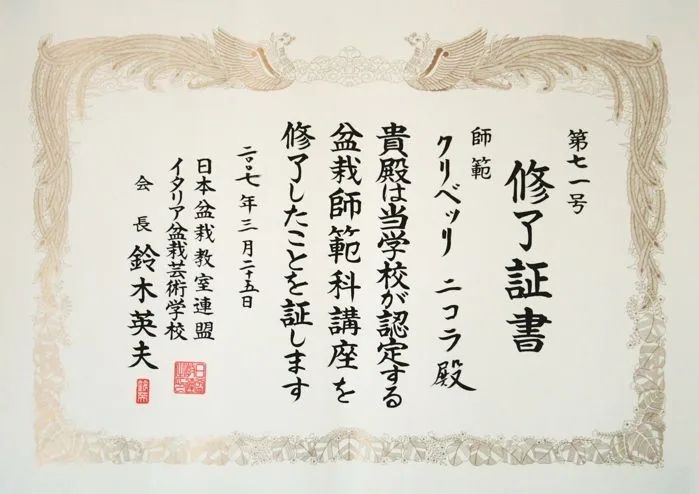 修了証書
第七一号
師範
クリベッリ ニコラ 殿
貴殿は当学校が認定する
盆栽師範科講座を
修了したことを証します
二〇〇七年三月二十五日
日本盆栽教室連盟
イタリア盆栽芸術学校
会長 鈴木英夫